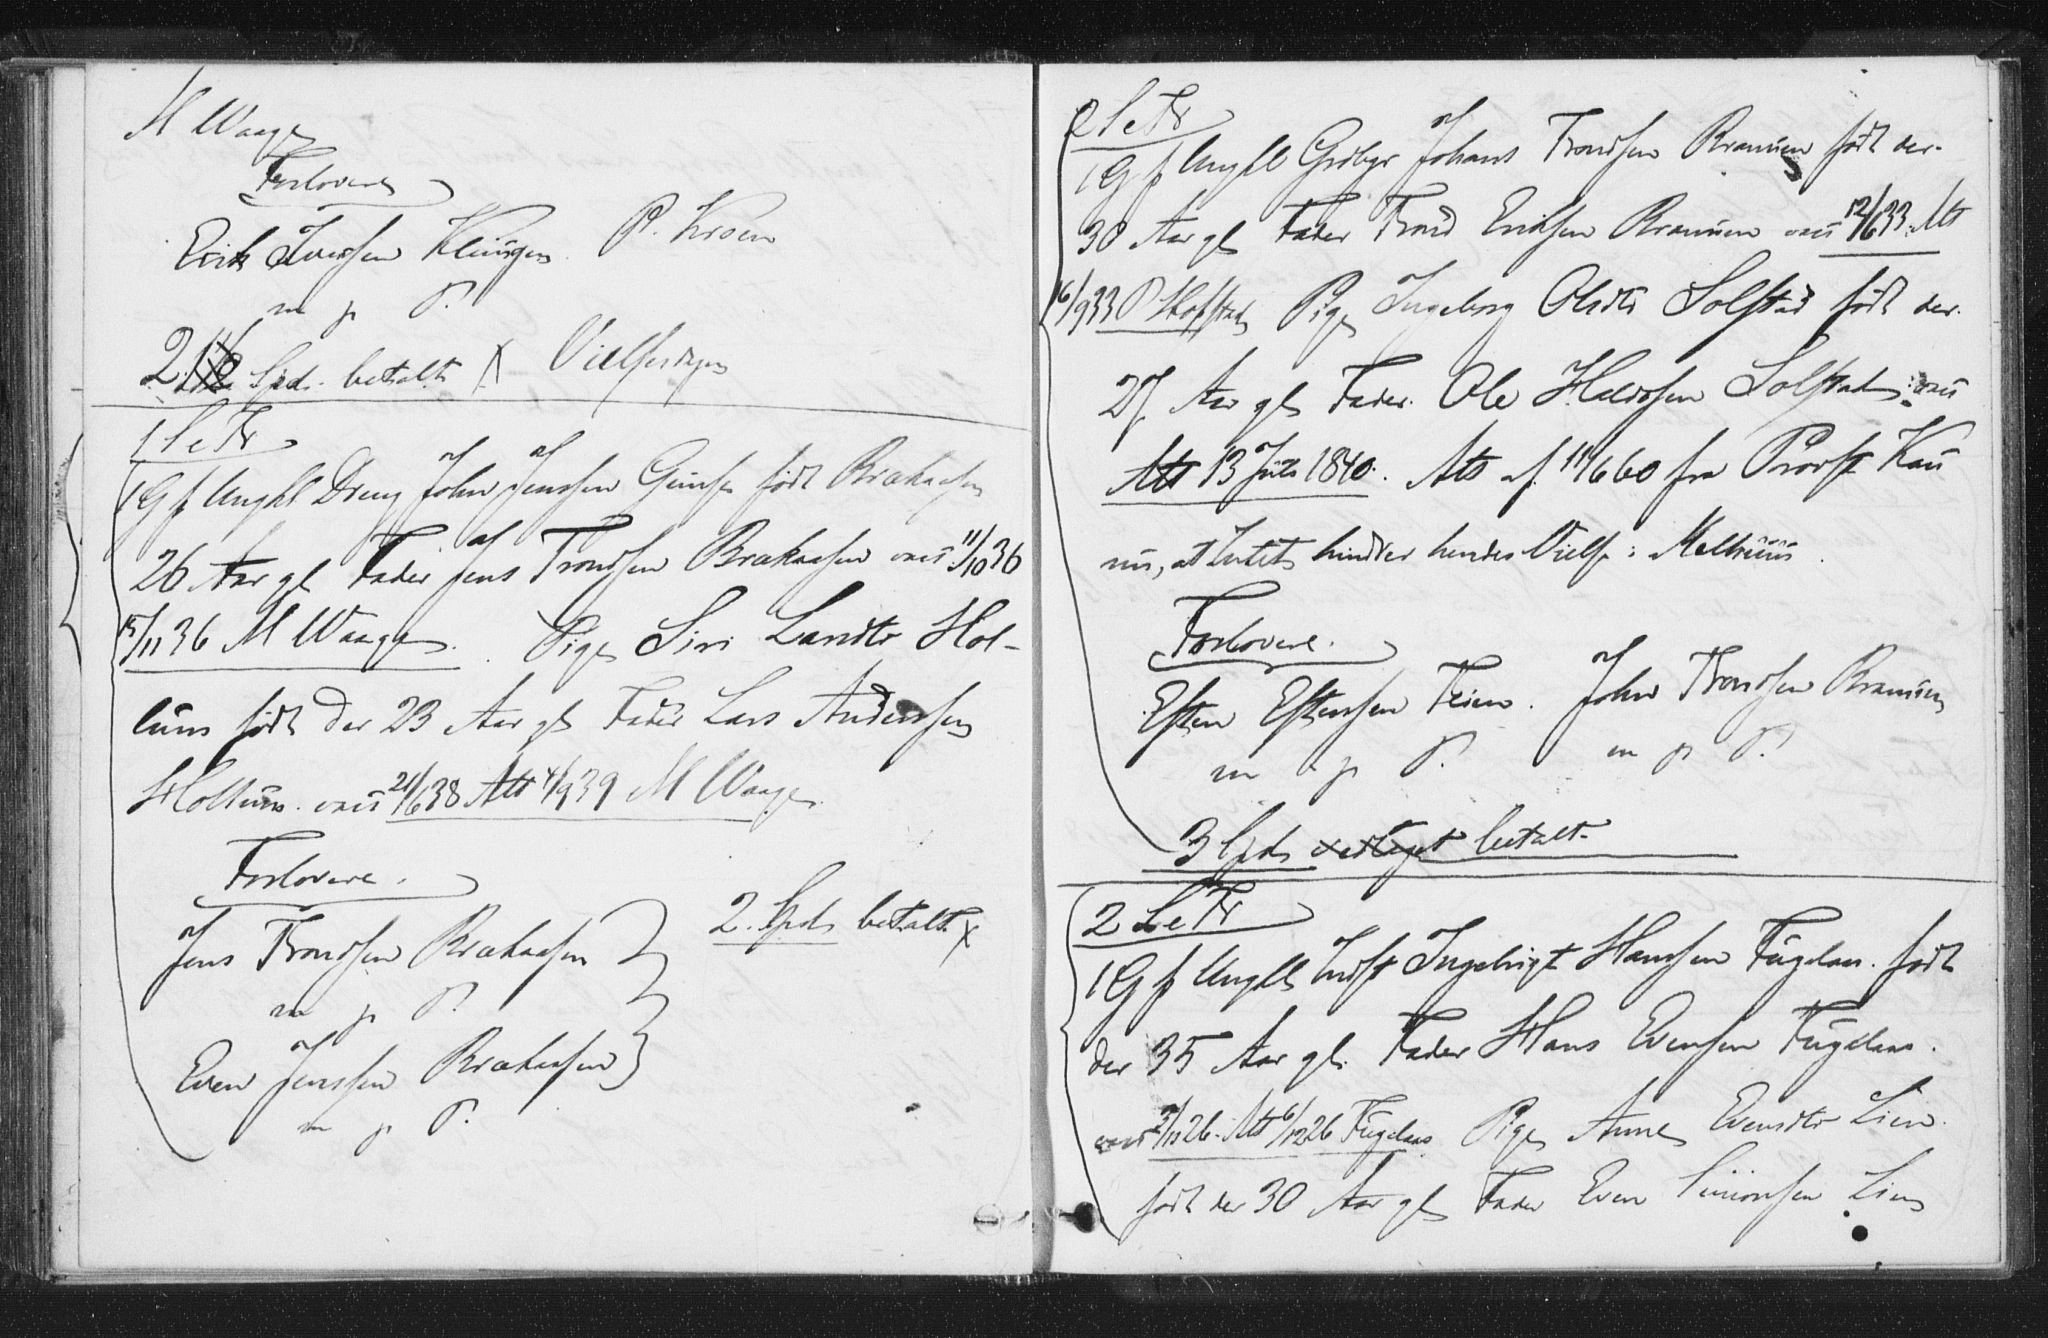 M Waage
Forlovere
Erik Iversen Klungen P. Kroen
m p P.
2 Spd. betalt Vielsesdagen
1 S e Tr
1 G f Ungkl Dreng John Jensen Gimse født Brækaasen
26 Aar gl Fader Jens Trondsen Brækaasen vacc 11/10 36
15/11 36 M Waage. Pige Siri Larsdtr Hol-
lum født der 23 Aar gl Fader Lars Andersen
Hollum. vacc 21/6 38 Att 4/9 39 M Waage
Forlovere.
Jens Trondsen Brækaasen 2. Spd. betalt
m p P.
Even Jensen Brækaasen
m p P.
2 S e Tr
1 G f Ungkl Grdbgr Johans Trondsen Braauen født der
30 Aar gl Fader Trond Eriksen Braauen vacc 12/6 33. Att
16/9 33 P Hofstad Pige Ingeborg Olsdtr Solstad født der.
27 Aar gl Fader Ole Haldosen Solstad vacc
Att 13 Juli 1840. Att af 11/6 60 fra Provst Kau
rin, at Intet hindrer hendes Vielse i Melhuus.
Forlovere.
Esten Estensen Teien. John Trondsen Braauen
m p P. m p P.
3 Spd. betalt
2 S e Tr
1 G f Ungkl Indst Ingebrigt Hansen Fuglaas. født
der 35 Aar gl. Fader Hans Evensen Fuglaas.
vacc /11 26. Att 6/12 26 Fuglaas Pige Anne Evensdtr Lien.
født der 30 Aar gl Fader Even Simonsen Lien